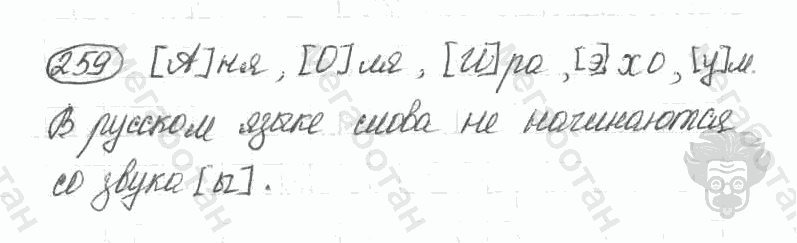 259 [А]ня, [О]ля, [И]ра, [э]хо, [у]м.
В русском языке слова не начинаются
со звука [ы].
мегаботан